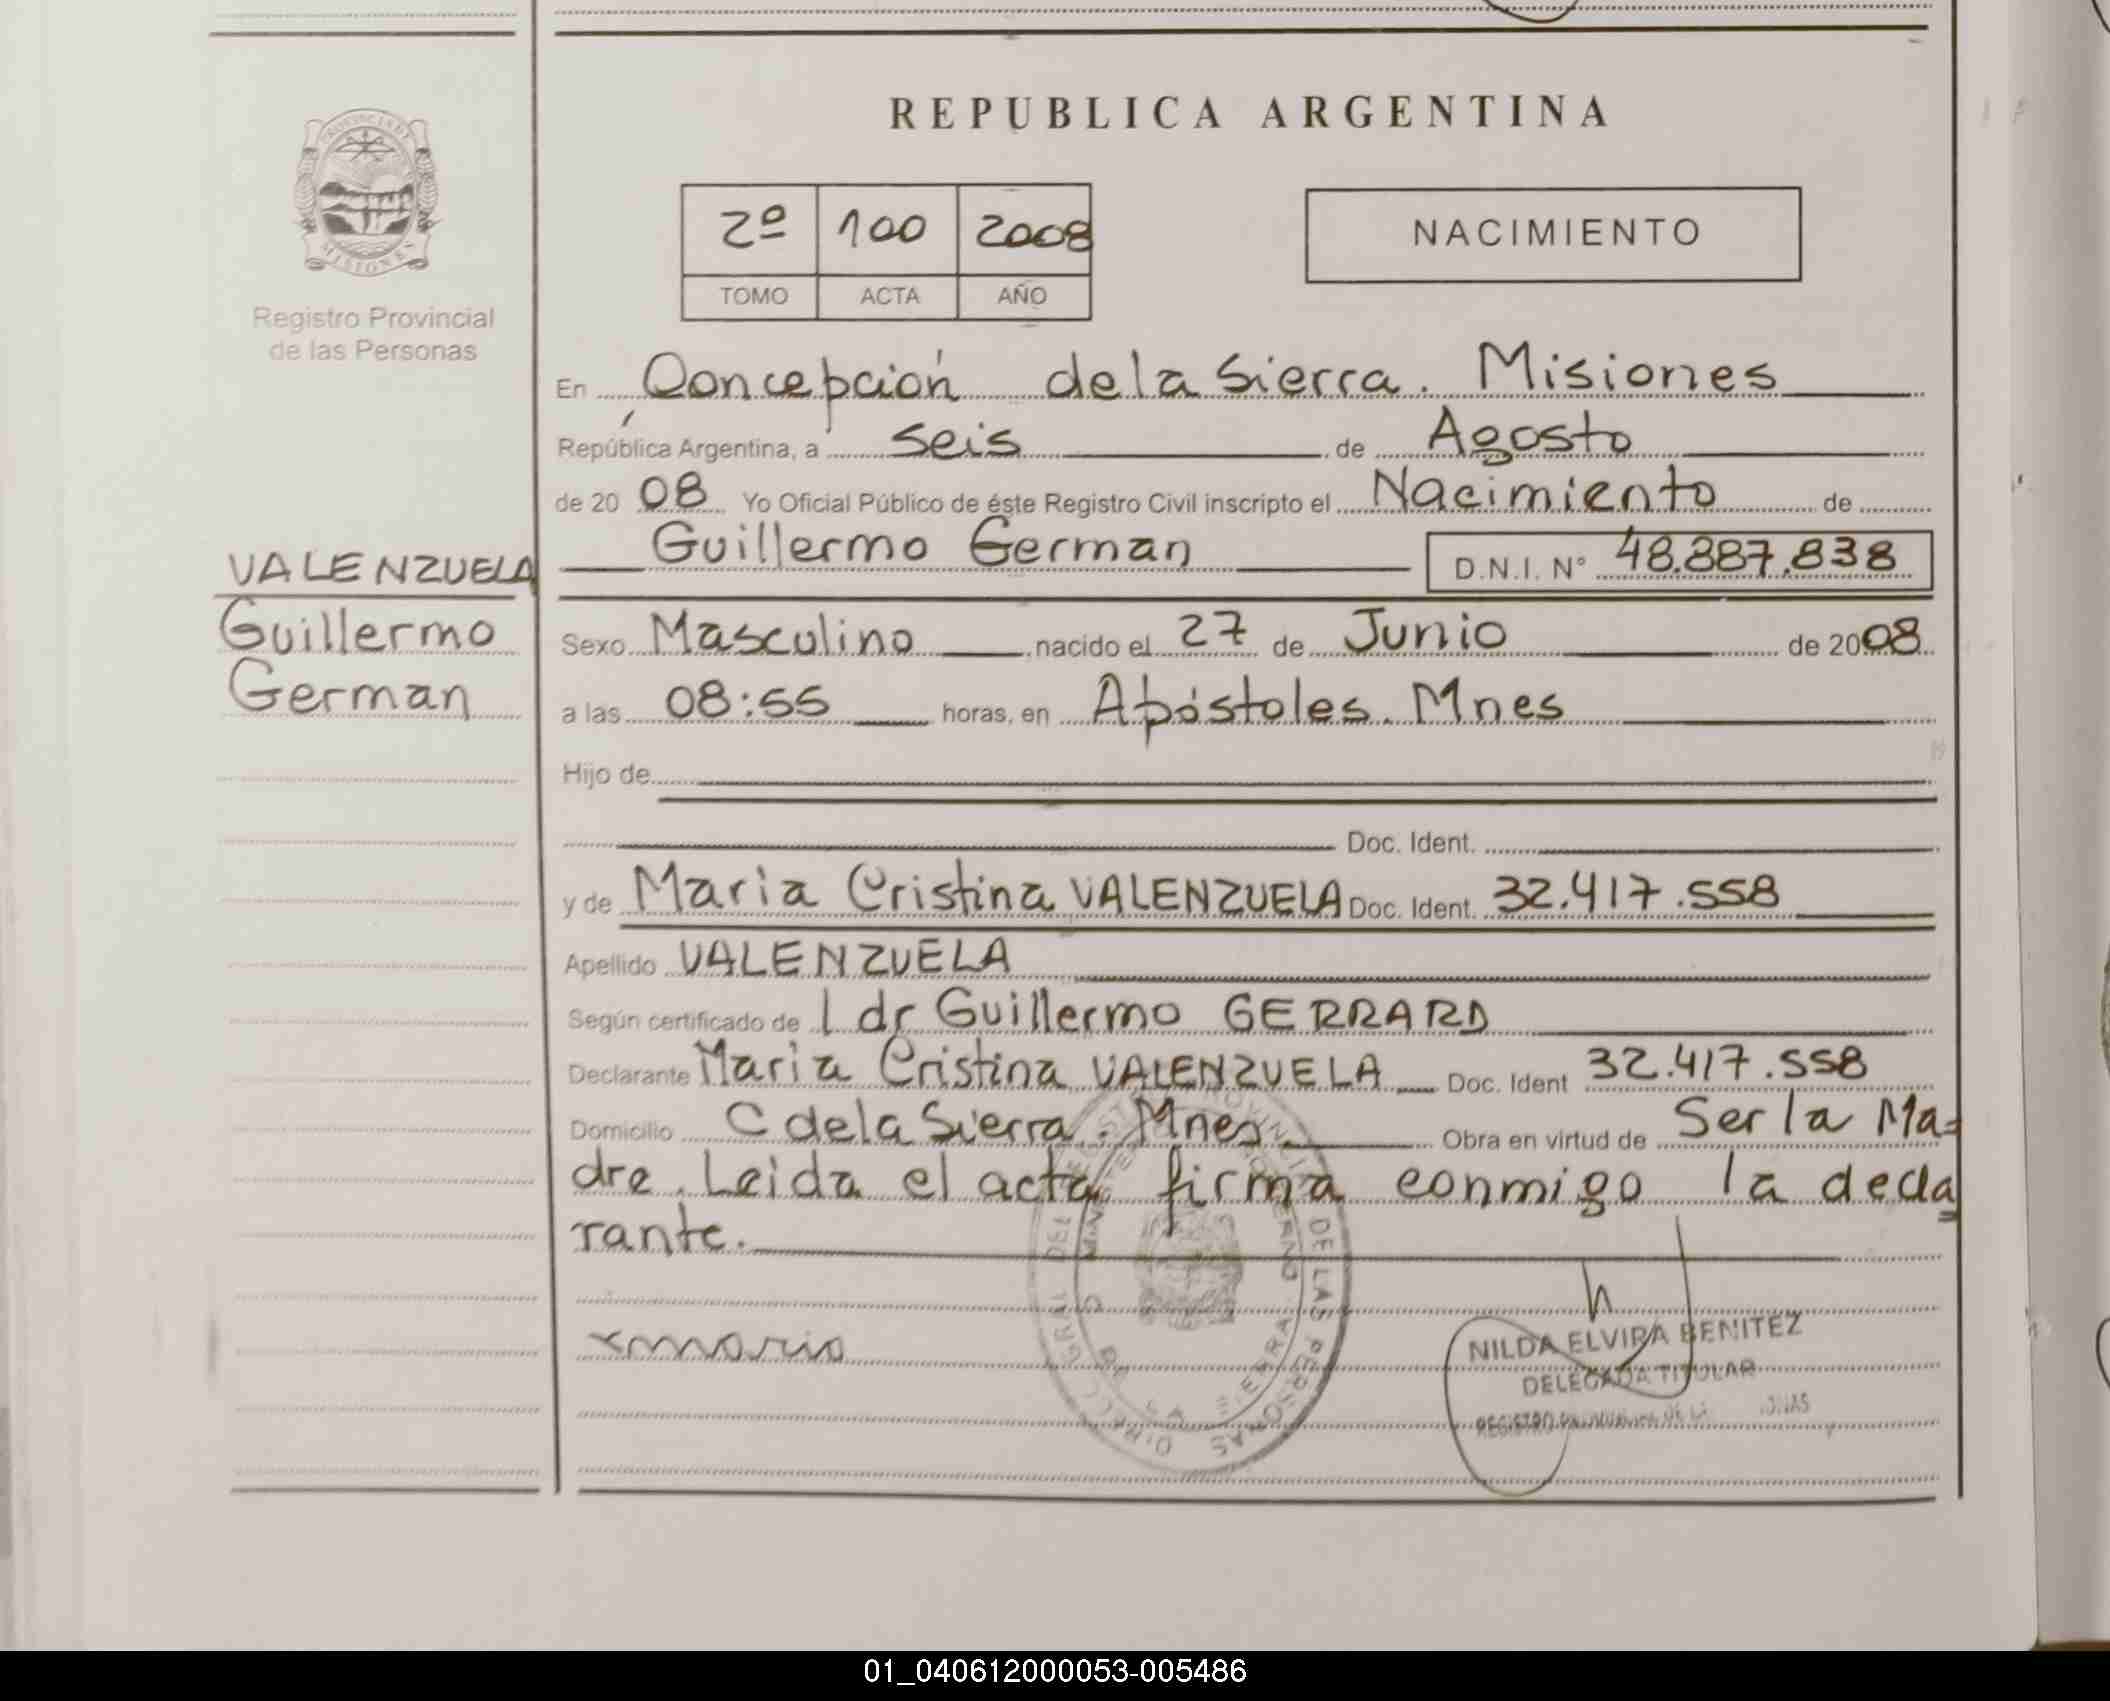 REPUBLICA ARGENTINA
PROVINCIA DE
MISIONES
Registro Provincial
de las Personas
2º 100 2008
TOMO ACTA AÑO
NACIMIENTO
En Concepción de la Sierra. Misiones
República Argentina, a seis de Agosto
de 20 08 Yo Oficial Público de éste Registro Civil inscripto el Nacimiento de
Guillermo German D.N.I. Nº 48.887.838
VALENZUELA
Guillermo
German
Sexo Masculino nacido el 27 de Junio de 2008
a las 08:55 horas, en Apóstoles. Mnes
Hijo de
Doc. Ident.
y de Maria Cristina VALENZUELA Doc. Ident. 32.417.558
Apellido VALENZUELA
Según certificado de l dr Guillermo GERRARD
Declarante Maria Cristina VALENZUELA Doc. Ident 32.417.558
Domicilio C de la Sierra. Mnes Obra en virtud de Ser la Ma=
dre. Leida el acta firma conmigo la decla
rante.
NILDA ELVIRA BENITEZ
DELEGADA TITULAR
REGISTRO
DE LAS PERSONAS
01_040612000053-005486